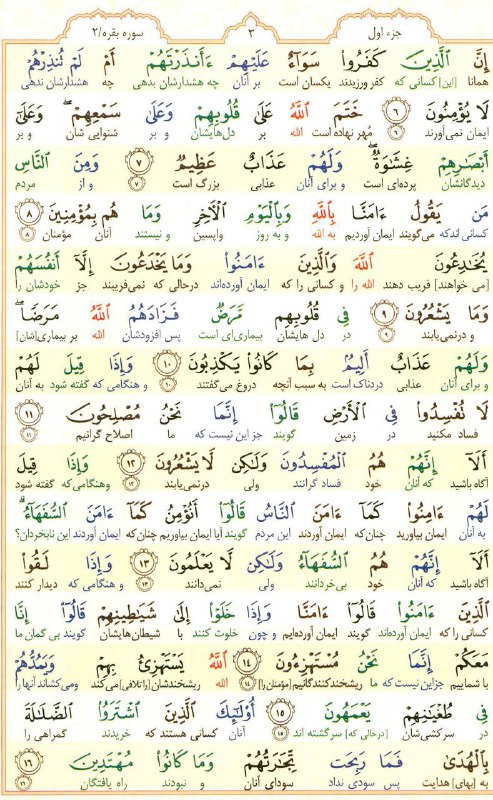 جزء اول ۳ سوره بقره/۲
إِنَّ ٱلَّذِينَ كَفَرُوا۟ سَوَآءٌ عَلَيْهِمْ ءَأَنذَرْتَهُمْ أَمْ لَمْ تُنذِرْهُمْ
همانا [این] کسانی که کفر ورزیدند یکسان است بر آنان چه هشدارشان بدهی چه هشدارشان ندهی
لَا يُؤْمِنُونَ ۶ خَتَمَ ٱللَّهُ عَلَىٰ قُلُوبِهِمْ وَعَلَىٰ سَمْعِهِمْ ۖ وَعَلَىٰٓ
ایمان نمی‌آورند ۶ مُهر نهاده است الله بر دل‌هایشان و بر شنوایی شان و بر
أَبْصَٰرِهِمْ غِشَٰوَةٌ ۖ وَلَهُمْ عَذَابٌ عَظِيمٌ ۷ وَمِنَ ٱلنَّاسِ
دیدگانشان پرده‌ای است و برای آنان عذابی بزرگ است ۷ و از مردم
مَن يَقُولُ ءَامَنَّا بِٱللَّهِ وَبِٱلْيَوْمِ ٱلْـَٔاخِرِ وَمَا هُم بِمُؤْمِنِينَ ۸
کسانی اندکه می‌گویند ایمان آوردیم به الله و به روز واپسین و نیستند آنان مؤمنان ۸
يُخَٰدِعُونَ ٱللَّهَ وَٱلَّذِينَ ءَامَنُوا۟ وَمَا يَخْدَعُونَ إِلَّآ أَنفُسَهُمْ
[می خواهند] فریب دهند الله را و کسانی را که ایمان آورده‌اند درحالی که نمی‌فریبند جز خودشان را
وَمَا يَشْعُرُونَ ۹ فِى قُلُوبِهِم مَّرَضٌ فَزَادَهُمُ ٱللَّهُ مَرَضًا ۖ
و درنمی‌یابند ۹ در دل هایشان بیماری‌ای است پس افزودشان الله بر بیماری[شان]
وَلَهُمْ عَذَابٌ أَلِيمٌۢ بِمَا كَانُوا۟ يَكْذِبُونَ ۱۰ وَإِذَا قِيلَ لَهُمْ
و برای آنان عذابی دردناک است به سبب آنچه دروغ می‌گفتند ۱۰ و هنگامی که گفته شود به آنان
لَا تُفْسِدُوا۟ فِى ٱلْأَرْضِ قَالُوٓا۟ إِنَّمَا نَحْنُ مُصْلِحُونَ ۱۱
فساد مکنید در زمین گویند جز این نیست که ما اصلاح گرانیم ۱۱
أَلَآ إِنَّهُمْ هُمُ ٱلْمُفْسِدُونَ وَلَٰكِن لَّا يَشْعُرُونَ ۱۲ وَإِذَا قِيلَ
آگاه باشید که آنان خود فساد گرانند ولی درنمی‌یابند ۱۲ وهنگامی‌که گفته شود
لَهُمْ ءَامِنُوا۟ كَمَآ ءَامَنَ ٱلنَّاسُ قَالُوٓا۟ أَنُؤْمِنُ كَمَآ ءَامَنَ ٱلسُّفَهَآءُ ۗ
به آنان ایمان بیاورید چنان‌که ایمان آوردند این مردم گویند آیا ایمان بیاوریم چنان‌که ایمان آوردند این نابخردان؟
أَلَآ إِنَّهُمْ هُمُ ٱلسُّفَهَآءُ وَلَٰكِن لَّا يَعْلَمُونَ ۱۳ وَإِذَا لَقُوا۟
آگاه باشید که آنان خود بی‌خردانند ولی نمی‌دانند ۱۳ و هنگامی که دیدار کنند
ٱلَّذِينَ ءَامَنُوا۟ قَالُوٓا۟ ءَامَنَّا وَإِذَا خَلَوْا۟ إِلَىٰ شَيَٰطِينِهِمْ قَالُوٓا۟ إِنَّا
کسانی را که ایمان آورده‌اند گویند ایمان آورده‌ایم و چون خلوت کنند با شیطان‌هایشان گویند بی گمان ما
مَعَكُمْ إِنَّمَا نَحْنُ مُسْتَهْزِءُونَ ۱۴ ٱللَّهُ يَسْتَهْزِئُ بِهِمْ وَيَمُدُّهُمْ
با شماییم جزاین نیست که ما ریشخندکنندگانیم [مؤمنان را] ۱۴ الله ریشخندشان [راتلافی] می‌کند ومی‌کشاند آنها را
فِى طُغْيَٰنِهِمْ يَعْمَهُونَ ۱۵ أُو۟لَٰٓئِكَ ٱلَّذِينَ ٱشْتَرَوُا۟ ٱلضَّلَٰلَةَ
در سرکشی‌شان [درحالی که] سرگشته اند ۱۵ آنان کسانی هستند که خریدند گمراهی را
بِٱلْهُدَىٰ فَمَا رَبِحَت تِّجَٰرَتُهُمْ وَمَا كَانُوا۟ مُهْتَدِينَ ۱۶
به [بهای] هدایت پس سودی نداد سودای آنان و نبودند راه یافتگان ۱۶